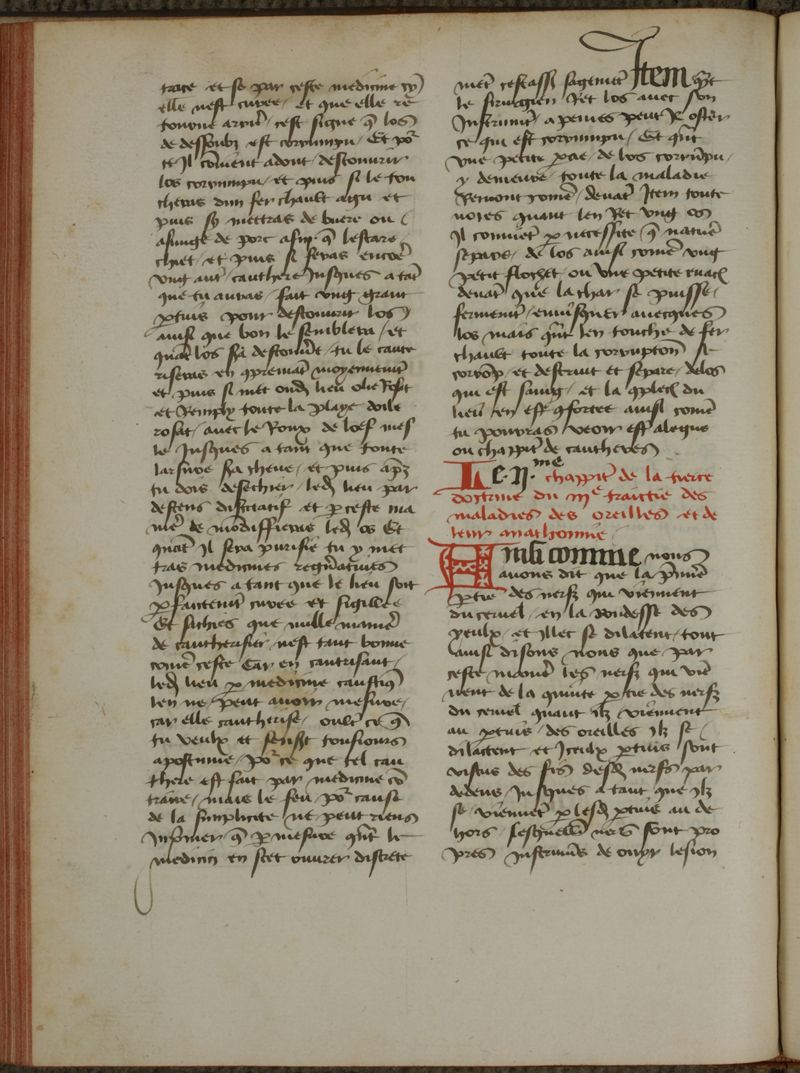 trace et se par ceste medicine cy
elle nest curee et que elle re
tourne arrie cest signe q̃ los
de dessoubz est corrumpu Et pō
te Il cōuient adont descouurir
los corrumpu et puis si le tou
cheras dun fer chault agu et
puis sy mettras de buere ou
asunge de porc affin q̃ lescare
chiet et puis si feras encore
vng aut̃ cauthere Jusques a tāt
que tu auras fait vng grant
ꝑtuis pour descouurir los
ainsi que bon te semblera et
quāt los sera descouuert tu le caute
riseras en ꝯpremāt moyennemēt
et puis si met oudꝭ lieu olie Rosat
et Remply toute la playe doile
rosat auec le Roux de loef mes
le Jusques a tant que toute
larsure sera cheue et puis apꝭ
tu dois desechier ledꝭ lieu par
desseus disicatif et ꝑ ceste ma
niē de modiffieras ledꝭ os Et
quāt Il sera purifie tu y met
tras medicines regn̄atiues
Jusques a tant que le lieu soit
ꝑfaitemēt curee et sigillee
Et saches que nulle manieē
de cautherisier nest tant bonne
comē ceste Car en cautrisant
ledꝭ lieu ꝑ medicine caustiq̄
len ne peut auoir mesure
car elle cautherise oult ce q̃
tu veulx et sensuit tousiours
apostume pō ce que tel cau
there est fait par medicine cō
traire mais le feu pō cause
de la simplicite ne peut riens
Inprimer q̃ ꝑ mesure qūt le
medicin en scet ouurer discrete
met cestassꝭ sagemēt Item qūt
le sirurgien Ret los auec son
Instrumēt a peines peut Il oster
ce qui est corrumpu Et qūt
vne petite ꝑtie de los corrūpu
y demeure toute la maladie
Remont comē deuāt Item toute
uoies quant len Ret vng os
Il conuiēt ꝑ necessite q̃ natuē
separe de los ainsi comē vng
petit flochet ou vne petite
deuāt que la char se puisse
fermemēt auecques
los mais qūt len touche de fer
chault toute la corruption se
corrōp et destruit et separe delos
qui est saing et la ꝯplecꝭ du
lieu en est ꝯfortee ainsi comē
tu pourras veoir est alegue
ou chappitꝭ de cautheres
Le .IIme. chappitꝭ de la tierce
doctrine du IIIe traictie des
maladies des oreilles et de
leur anathomie
Ainsi comme nous
auons dit que la ꝑmiē
ꝑtie des nerfz qui viennent
du ceruel en la Rondesse des
yeulx et Illec se dilatent tout
ainsi disons nous que par
ceste maniē les nerfz qui viē
nent de la quinte ꝑtie des nerfz
du ceruel quant Ilz viennent
au ꝑtuis des oreilles Ilz se
dilactent et Iceulx ꝑtuis sont
vistus des fis desdꝭ nerfs par
dedens Jusques a tant que Ilz
se viennēt ꝑ lesdꝭ ꝑtuis au de
hors lesquelles nerfs sont pro
pres Instrumēs de ouyr lesion